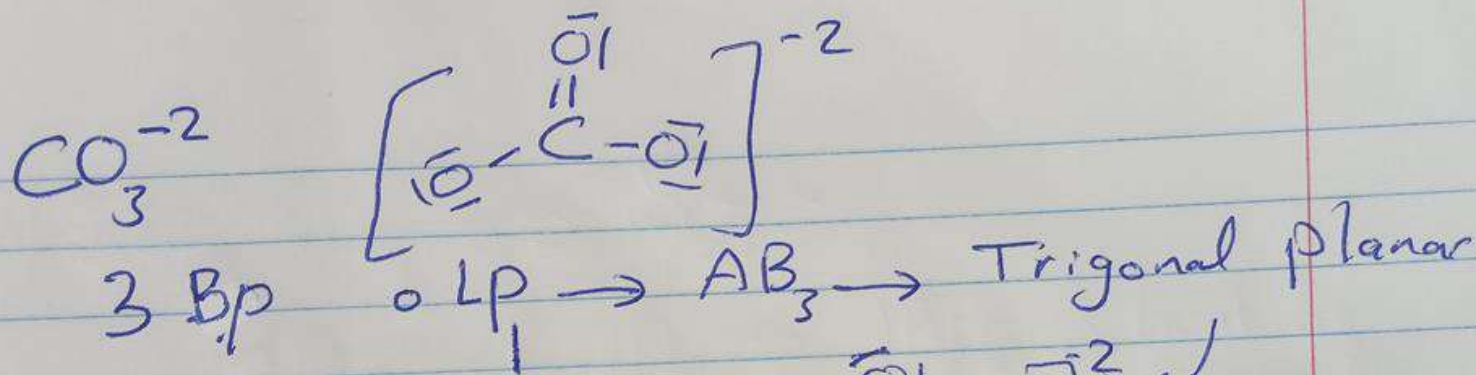 O̅|
||
CO₃⁻² [ |O̲̅ - C - O̲̅| ]⁻²
3 Bp 0 Lp → AB₃ → Trigonal planar